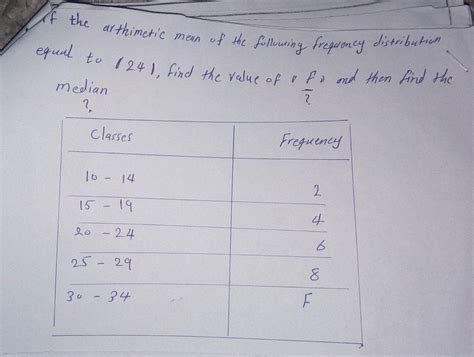 if the arthimetic mean of the following frequency distribution
equal to (24), find the value of "F" and then find the
?
median
?
Classes Frequency
10 - 14 2
15 - 19 4
20 - 24 6
25 - 29 8
30 - 34 F